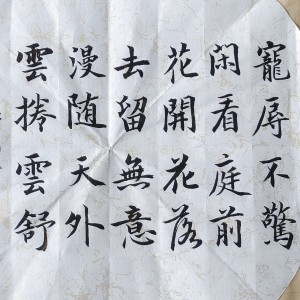 寵辱不驚
閑看庭前
花開花落
去留無意
漫随天外
雲捲雲舒